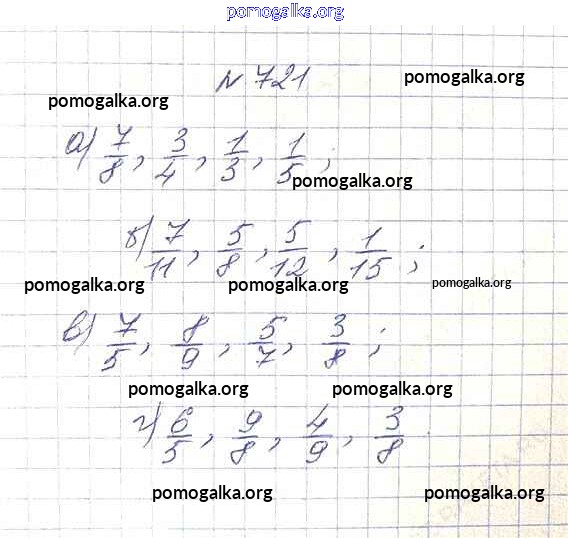 pomogalka.org
№ 721
pomogalka.org
pomogalka.org
а) 7/8, 3/4, 1/3, 1/5;
pomogalka.org
б) 7/11, 5/8, 5/12, 1/15;
pomogalka.org pomogalka.org pomogalka.org
в) 7/5, 8/9, 5/7, 3/8;
pomogalka.org pomogalka.org
г) 6/5, 9/8, 4/9, 3/8
pomogalka.org pomogalka.org